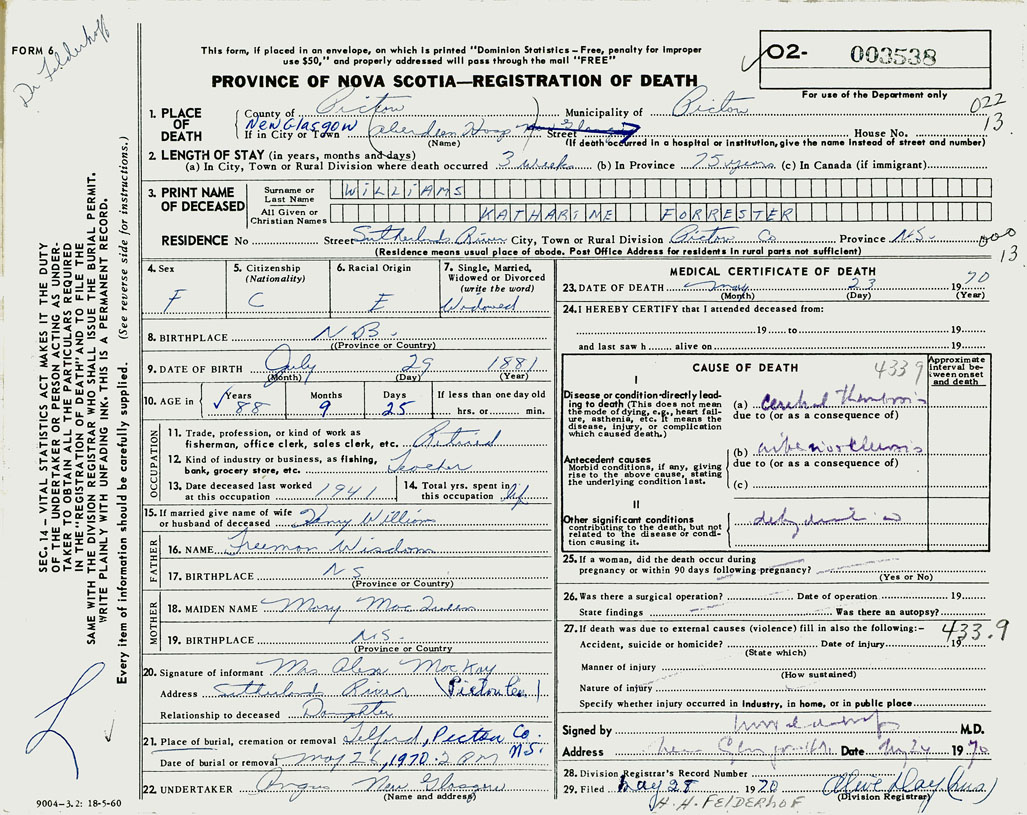 FORM 6
Dr Felderhof
This form, if placed in an envelope, on which is printed "Dominion Statistics – Free, penalty for improper
use $50," and properly addressed will pass through the mail "FREE"
PROVINCE OF NOVA SCOTIA—REGISTRATION OF DEATH
O2- 003538
For use of the Department only
022
13
1. PLACE OF DEATH
County of Pictou Municipality of Pictou
New Glasgow Aberdeen Hosp
If in City or Town (Name) Street House No.
(If death occurred in a hospital or institution, give the name instead of street and number)
2. LENGTH OF STAY (in years, months and days)
(a) In City, Town or Rural Division where death occurred 3 weeks (b) In Province 75 years (c) In Canada (if immigrant)
3. PRINT NAME OF DECEASED
Surname or Last Name WILLIAMS
All Given or Christian Names KATHARINE FORRESTER
RESIDENCE No Street Sutherlands River City, Town or Rural Division Pictou Co Province N.S.
(Residence means usual place of abode. Post Office Address for residents in rural parts not sufficient)
000
13
4. Sex F
5. Citizenship (Nationality) C
6. Racial Origin E
7. Single, Married, Widowed or Divorced (write the word) Widowed
8. BIRTHPLACE N.B.
(Province or Country)
9. DATE OF BIRTH July 29 1881
(Month) (Day) (Year)
10. AGE in Years 88 Months 9 Days 25 If less than one day old hrs. or min.
OCCUPATION
11. Trade, profession, or kind of work as fisherman, office clerk, sales clerk, etc. Retired
12. Kind of industry or business, as fishing, bank, grocery store, etc. Teacher
13. Date deceased last worked at this occupation 1941
14. Total yrs. spent in this occupation life
15. If married give name of wife or husband of deceased Henry Williams
FATHER
16. NAME Freeman Wisdom
17. BIRTHPLACE N.S.
(Province or Country)
MOTHER
18. MAIDEN NAME Mary
19. BIRTHPLACE N.S.
(Province or Country
20. Signature of informant Mrs Alex MacKay
Address Sutherlands River Pictou Co.
Relationship to deceased Daughter
21. Place of burial, cremation or removal Telford, Pictou Co. N.S.
Date of burial or removal May 26, 1970 2 PM
22. UNDERTAKER Angus New Glasgow
(Name and address)
MEDICAL CERTIFICATE OF DEATH
23. DATE OF DEATH May 23 1970
(Month) (Day) (Year)
24. I HEREBY CERTIFY that I attended deceased from:
19 to 19
and last saw h alive on 19
CAUSE OF DEATH
4339
Approximate interval between onset and death
I
Disease or condition directly leading to death (This does not mean the mode of dying, e.g., heart failure, asthenia, etc. It means the disease, injury, or complication which caused death.)
(a) Cerebral thrombosis
due to (or as a consequence of)
Antecedent causes
Morbid conditions, if any, giving rise to the above cause, stating the underlying condition last.
(b) arteriosclerosis
due to (or as a consequence of)
(c)
II
Other significant conditions contributing to the death, but not related to the disease or condition causing it.
dehydration
25. If a woman, did the death occur during pregnancy or within 90 days following pregnancy?
(Yes or No)
26. Was there a surgical operation? Date of operation 19
State findings Was there an autopsy?
27. If death was due to external causes (violence) fill in also the following:– 433.9
Accident, suicide or homicide? Date of injury 19
(State which)
Manner of injury
(How sustained)
Nature of injury
Specify whether injury occurred in industry, in home, or in public place
Signed by M.D.
Address New Glasgow N.S. Date May 24 1970
28. Division Registrar's Record Number
29. Filed May 28 1970 Olive Day (Mrs.)
(Division Registrar)
H. H. FELDERHOF
9004–3.2: 18-5-60
SEC. 14 – VITAL STATISTICS ACT MAKES IT THE DUTY
OF THE UNDERTAKER OR PERSON ACTING AS UNDER-
TAKER TO OBTAIN ALL THE PARTICULARS REQUIRED
IN THE "REGISTRATION OF DEATH" AND TO FILE THE
SAME WITH THE DIVISION REGISTRAR WHO SHALL ISSUE THE BURIAL PERMIT.
WRITE PLAINLY WITH UNFADING INK. THIS IS A PERMANENT RECORD.
Every item of information should be carefully supplied. (See reverse side for instructions.)